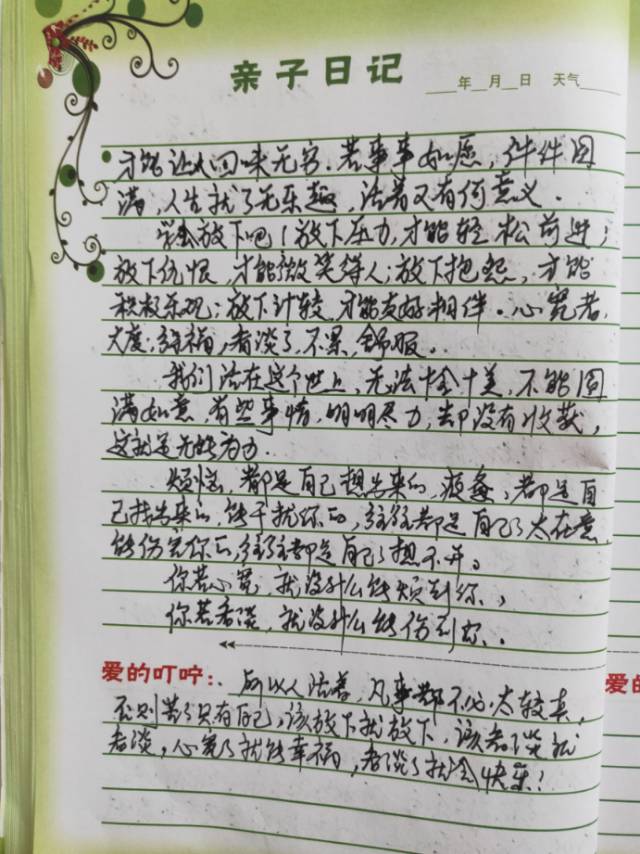 亲子日记
____年__月__日 天气____
才能让人回味无穷。若事事如愿，件件圆
满，人生就了无乐趣，活着又有何意义。
学会放下吧！放下压力，才能轻松前进；
放下仇恨，才能微笑待人；放下抱怨，才能
积极乐观；放下计较，才能友好相伴。心宽者，
大度；幸福，看淡了，不累，舒服。
我们活在这个世上，无法十全十美，不能圆
满如意，有些事情，明明尽力，却没有收获，
这就是无能为力。
烦恼，都是自己想出来的，疲惫，都是自
己找出来的，能干扰你的，往往都是自己了太在意，
能伤害你的，往往都是自己了想不开。
你若心宽，就没什么能烦到你，
你若看淡，就没什么能伤到你。
爱的叮咛：所以人活着，凡事都不必太较真，
否则苦了只有自己，该放下就放下，该看淡就
看淡，心宽了就能幸福，看淡了就会快乐！
爱的